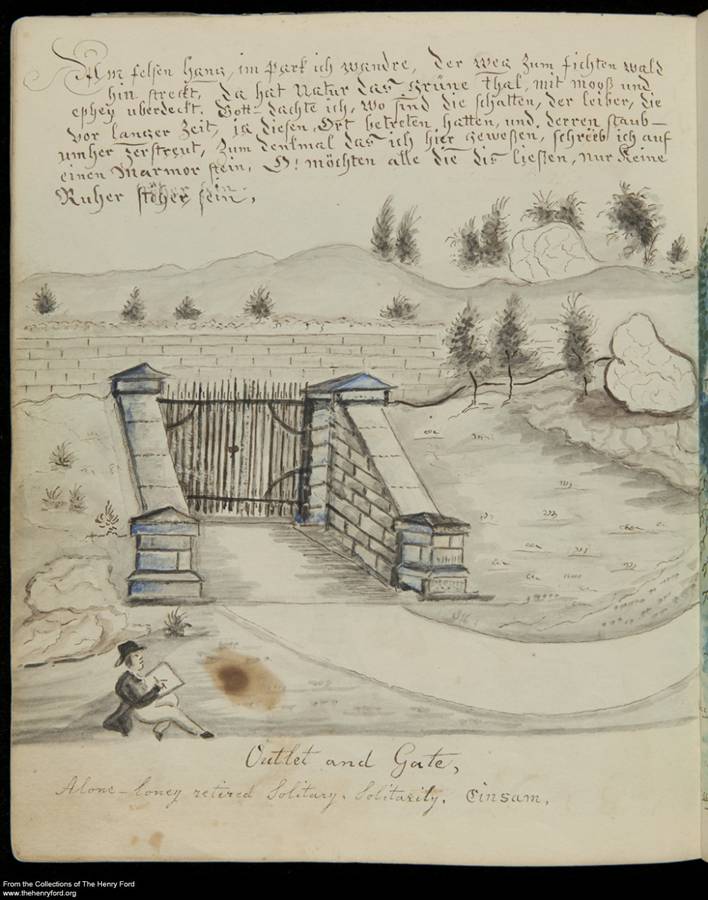 Am felsen hang, im park ich wandre, der weg zum fichten wald
hin streckt, da hat Natur das grüne thal, mit mooß und
ephey uberdeckt. Gott dachte ich, wo sind die schatten, der leiber, die
vor langer Zeit, in diesen Ort betreten hatten, und derren staub–
umher zerstreut, Zum denkmal das ich hier geweßen, schrieb ich auf
einen Marmor stein, O! möchten alle die dis ließen, nur Keine
Ruher stöher sein,
Outlet and Gate,
Alone – loney retired Solitary. Solitarily. Einsam,
From the Collections of The Henry Ford
www.thehenryford.org